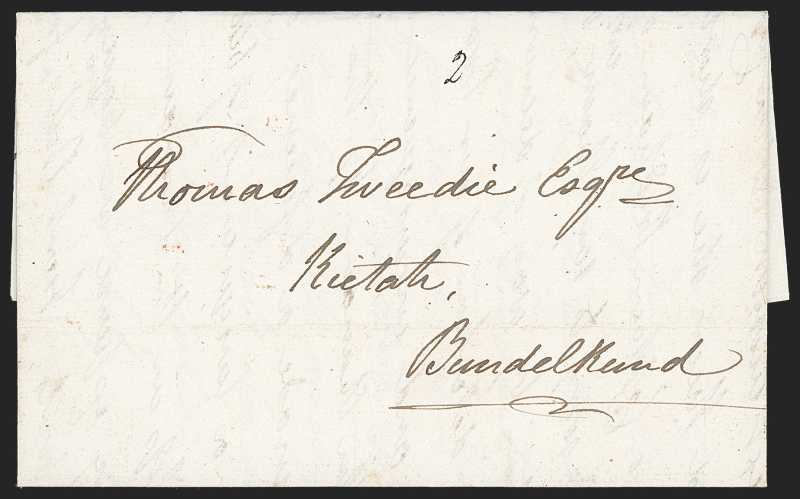 2
Thomas Tweedie Esqre
Kietah,
Bundelkund